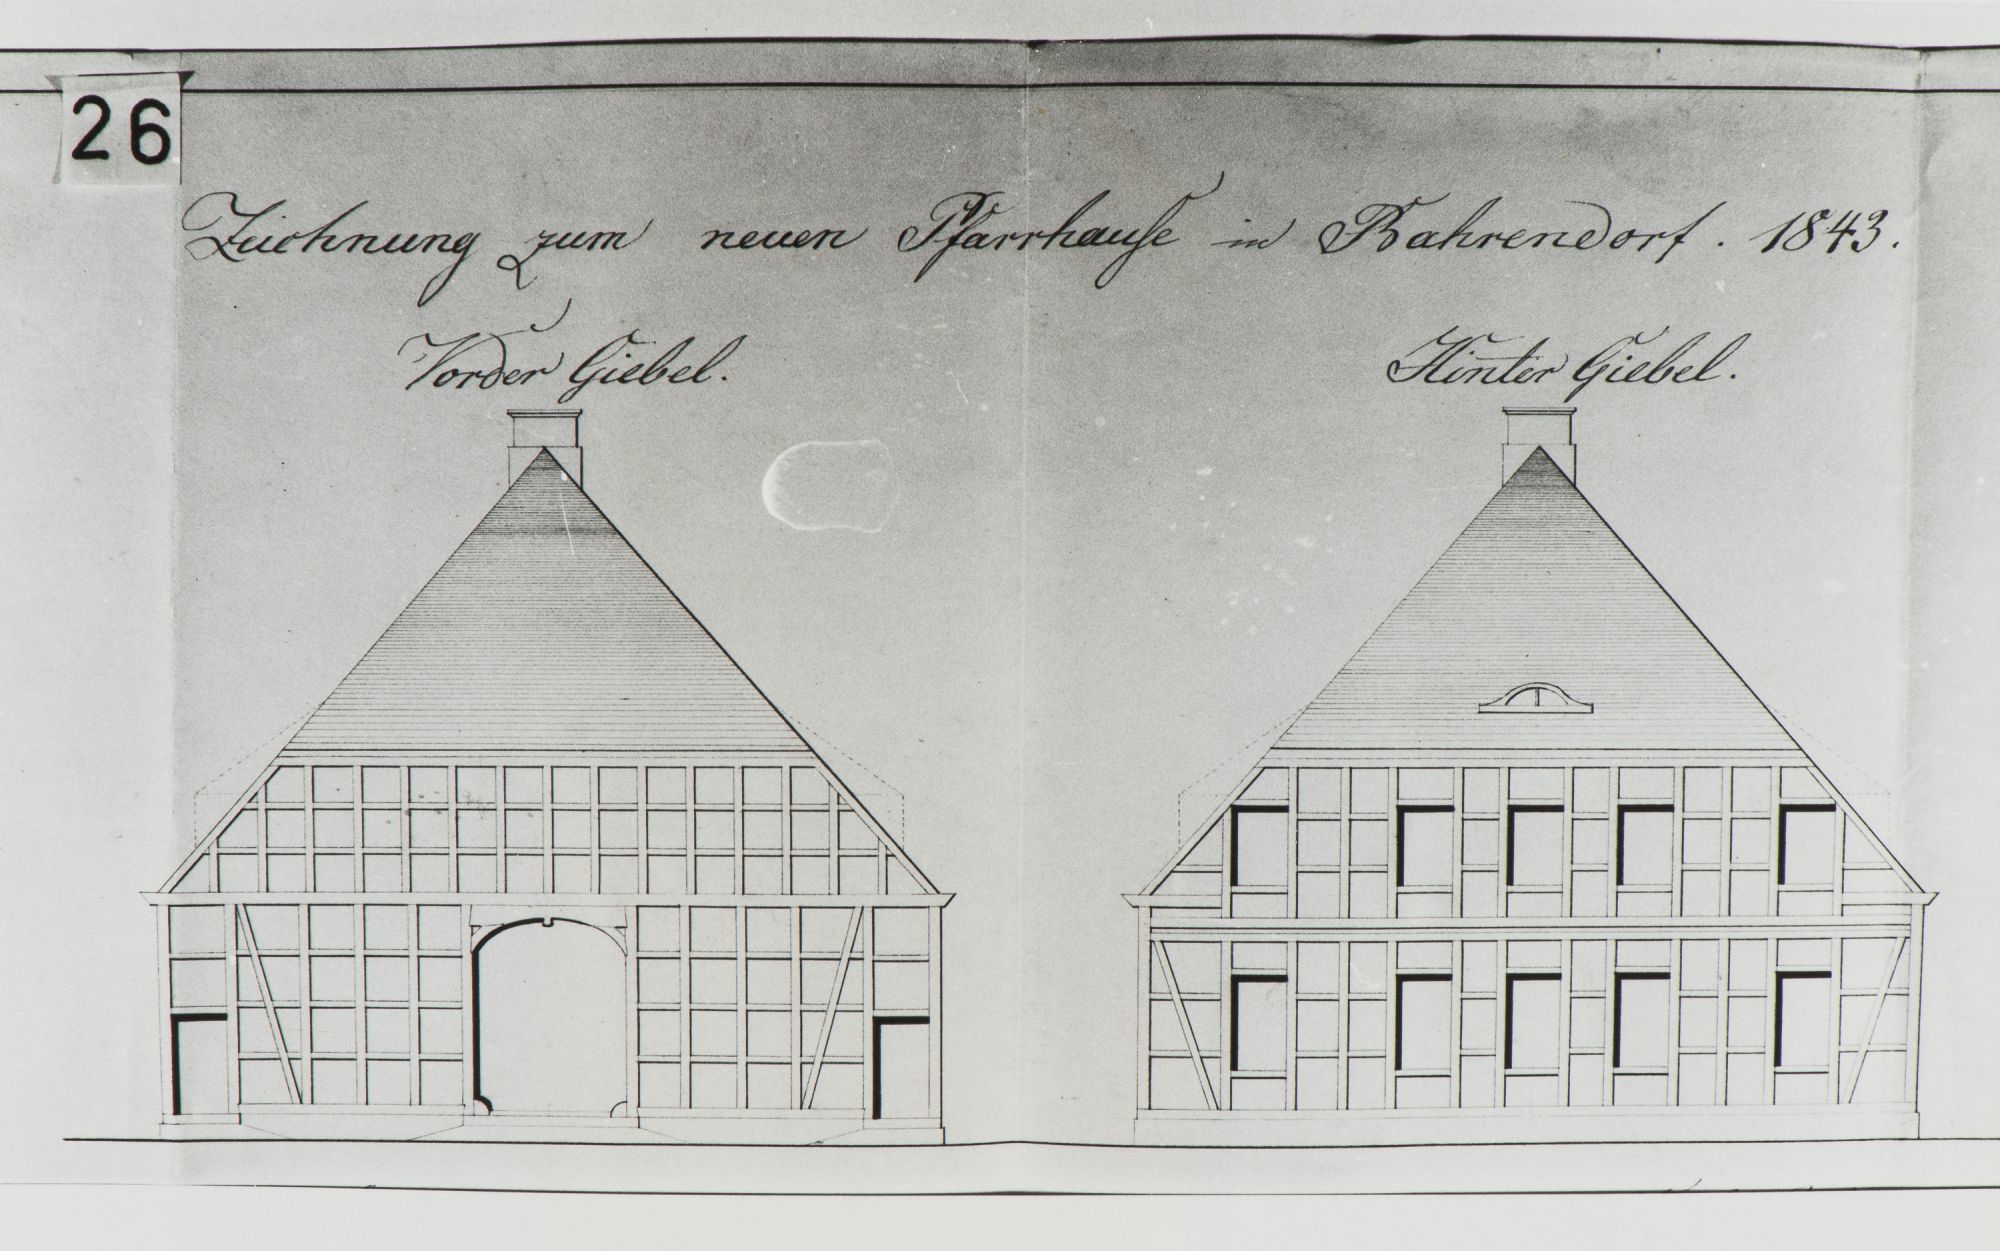 26
Zeichnung zum neuen Pfarrhauſe in Bahrendorf. 1843.
Vorder Giebel.
Hinter Giebel.